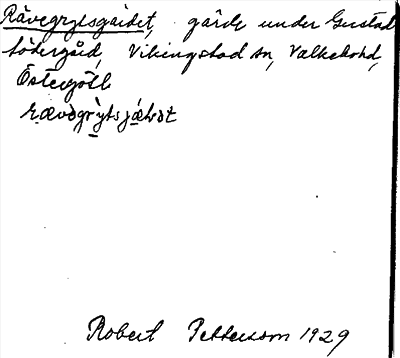 Rävegrytsgärdet, gärde under Gustad
Södergård, Vikingstad sn, Valkebohd,
Östergötl
rævəgrỳtsjæ̀ɽət
Robert Pettersson 1929